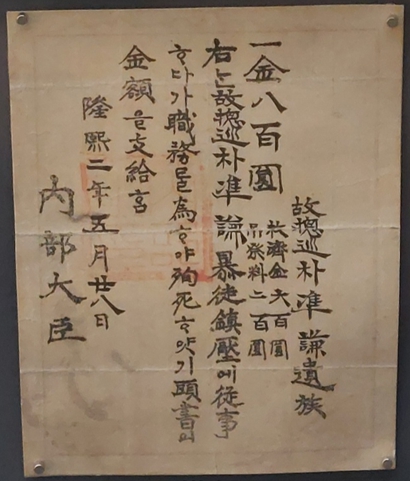 故摠巡朴準謙遺族
一金八百圓
救濟金六百圓
吊祭料二百圓
右는故摠巡朴準謙暴徒鎮壓에從事
ᄒᆞ다가職務를為ᄒᆞ야殉死ᄒᆞ얏기頭書의
金額을支給홈
隆熙二年五月廿八日
內部大臣